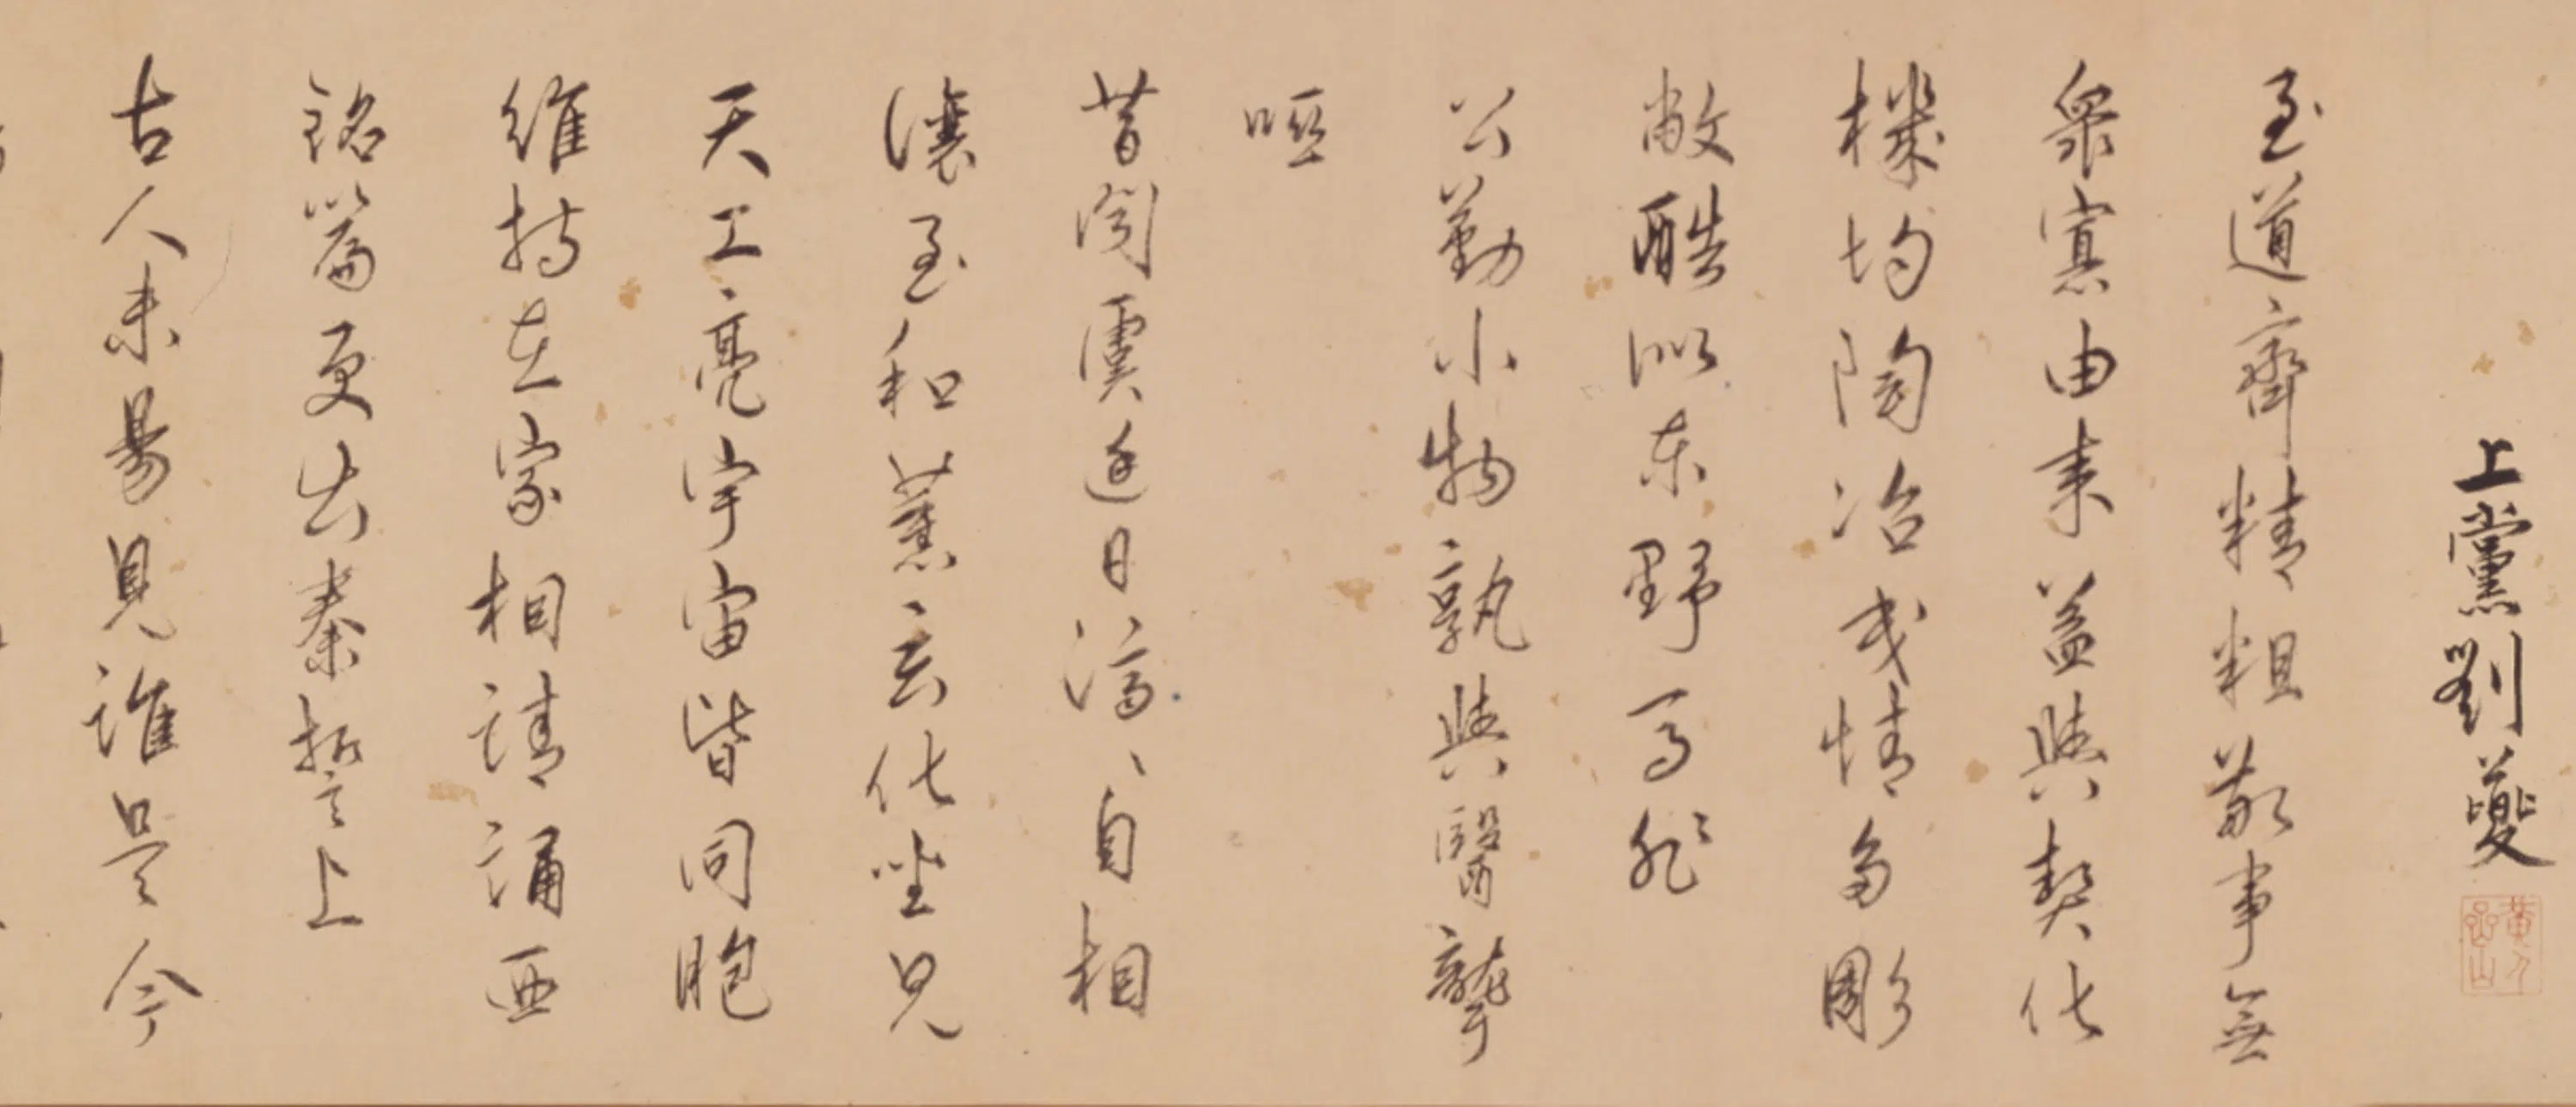 上黨劉夔
至道齊精粗敬事無
衆寡由来益與契化
機均陶冶戎情多彫
敝酷似东野馬非
公勤小物孰與醫聾
啞
昔聞虞廷日濟、自相
讓至和薰玄化坐見
天工亮宇宙皆同胞
維持在家相請誦西
銘篇更出秦誓上
古人未易見誰是今